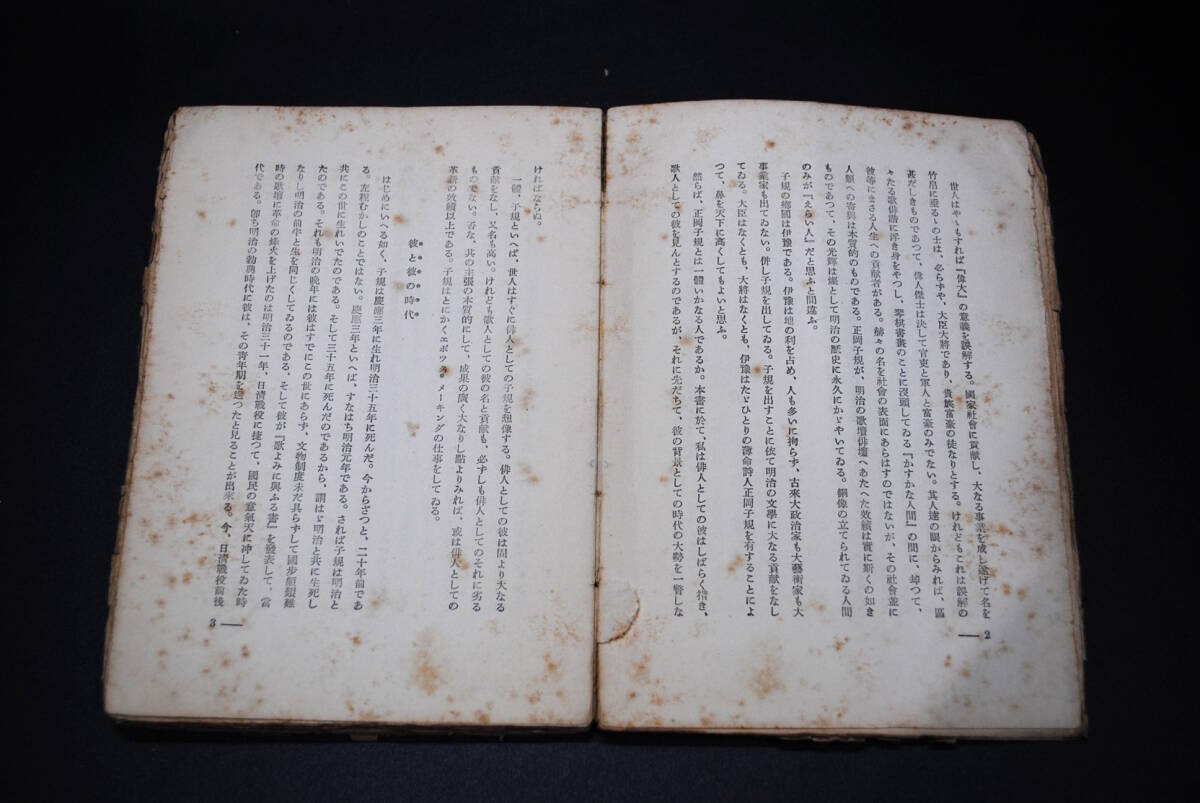 世人はやゝもすれば『偉大』の意義を誤解する。國家社會に貢献し、大なる事業を成し遂げて名を
竹帛に垂るゝの士は、必らずや、大臣大將であり、貴族富豪の徒なりとする。けれどもこれは誤解の
甚だしきものであつて、偉人傑士は決して官吏と軍人と富豪のみでない。其人達の眼からみれば、區
々たる歌俳諧に浮き身をやつし、琴棋書畫のことに沒頭してゐる『かすかな人間』の間に、却つて、
彼等にまさる人生への貢献者がある。赫々の名を社會の表面にあらはすのではないが、その社會並に
人類への寄與は本質的のものである。正岡子規が、明治の歌壇俳壇へあたへた效績は實に斯くの如き
ものであつて、その光輝は燦として明治の歴史に永久にかゞやいてゐる。銅像の立てられてゐる人間
のみが『えらい人』だと思ふと間違ふ。
子規の鄕國は伊豫である。伊豫は地の利を占め、人も多いに拘らず、古來大政治家も大藝術家も大
事業家も出てゐない。併し子規を出してゐる。子規を出すことに依て明治の文學に大なる貢献をなし
てゐる。大臣はなくとも、大將はなくとも、伊豫はたゞひとりの薄命詩人正岡子規を有することによ
つて、鼻を天下に高くしてもよいと思ふ。
然らば、正岡子規とは一體いかなる人であるか。本書に於て、私は俳人としての彼はしばらく措き、
歌人としての彼を見んとするのであるが、それに先だちて、彼の背景としての時代の大勢を一瞥しな
2
ければならぬ。
一體、子規といへば、世人はすぐに俳人としての子規を想像する。俳人としての彼は固より大なる
貢献をなし、又名も高い。けれども歌人としての彼の名と貢献も、必ずしも俳人としてのそれに劣る
ものでない。否な、其の主張の本質的にして、成果の廣く大なりし點よりみれば、或は俳人としての
革新の效績以上である。子規はとにかくエポック・メーキングの仕事をしてゐる。
彼と彼の時代
はじめにいへる如く、子規は慶應三年に生れ明治三十五年に死んだ。今からざつと、二十年前であ
る。左程むかしのことではない。慶應三年といへば、すなはち明治元年である。されば子規は明治と
共にこの世に生れいでたのである。そして三十五年に死んだのであるから、謂はゞ明治と共に生死し
たのである。それも明治の晩年には彼はすでにこの世にあらず、文物制度未だ具らずして國步艱難
なりし明治の前半と生を同じくしてゐるのである、そして彼が『歌よみに與ふる書』を發表して、當
時の歌壇に革命の烽火を上げたのは明治三十一年、日清戰役に捷つて、國民の意氣天に冲してゐた時
代である。卽ち明治の勃興時代に彼は、その靑年期を送つたと見ることが出來る。今、日清戰役前後
3